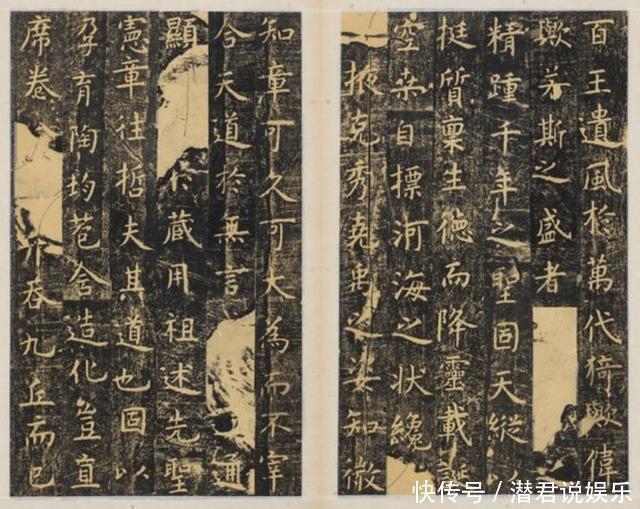 百王遺風於萬代猗歟偉
歟若斯之盛者
精踵千年之聖固天縱以
挺質稟生德而降靈載誕
空桒自標河海之狀纔
掖克秀堯禹之姿知微
知章可久可大為而不宰
合天道於無言 通
顯 藏用祖述先聖
憲章往哲夫其道也固以
孕育陶均苞含造化豈直
席卷 吞九丘而已
快传号／潜君说娱乐